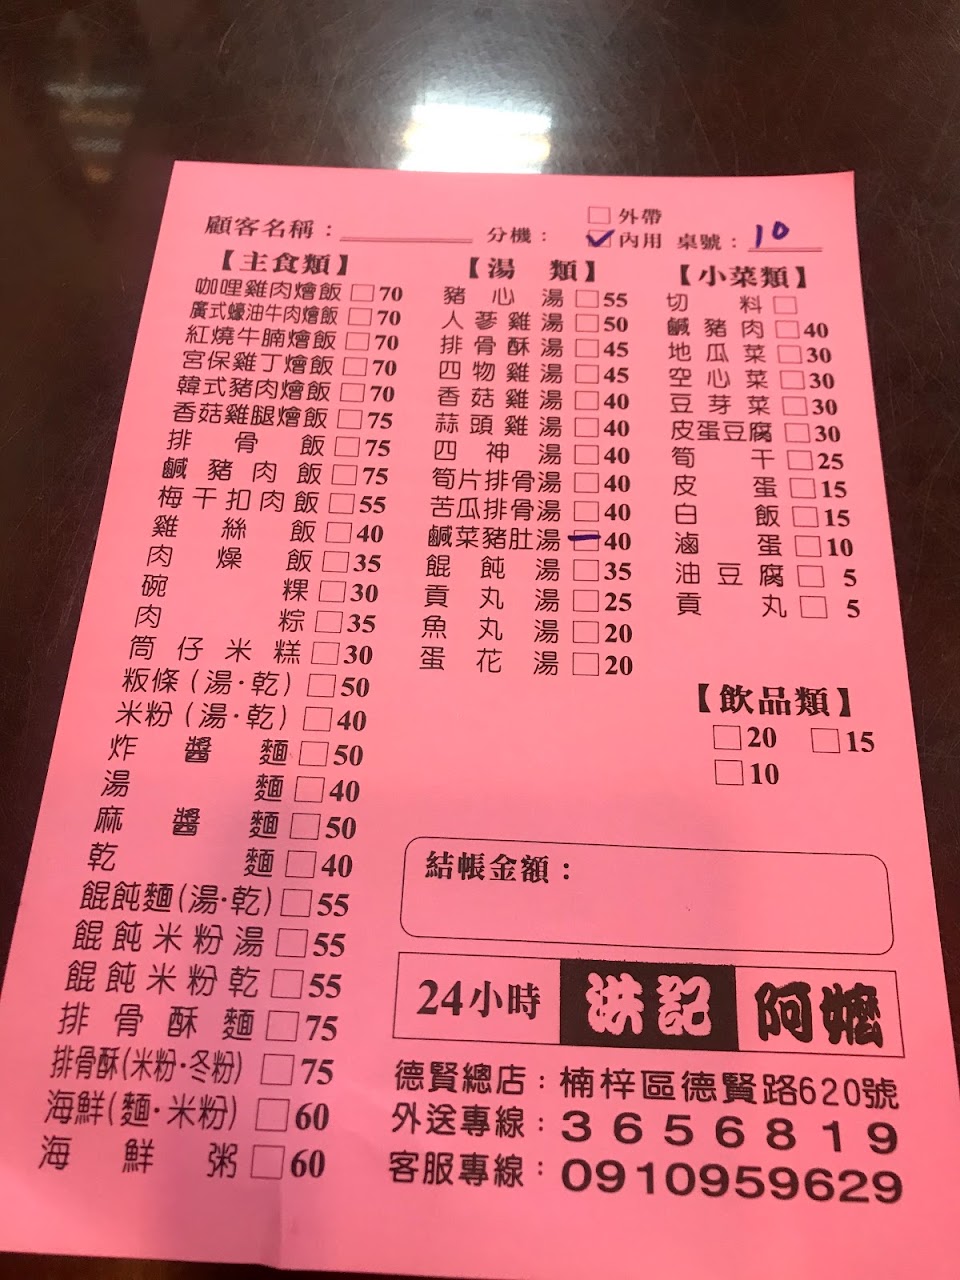 □外帶
顧客名稱：＿＿＿＿ 分機： ☑內用 桌號：10
【主食類】
咖哩雞肉燴飯□70
廣式蠔油牛肉燴飯□70
紅燒牛腩燴飯□70
宮保雞丁燴飯□70
韓式豬肉燴飯□70
香菇雞腿燴飯□75
排骨飯□75
鹹豬肉飯□75
梅干扣肉飯□55
雞絲飯□40
肉燥飯□35
碗粿□30
肉粽□35
筒仔米糕□30
粄條(湯·乾)□50
米粉(湯·乾)□40
炸醬麵□50
湯麵□40
麻醬麵□50
乾麵□40
餛飩麵(湯·乾)□55
餛飩米粉湯□55
餛飩米粉乾□55
排骨酥麵□75
排骨酥(米粉·冬粉)□75
海鮮(麵·米粉)□60
海鮮粥□60
【湯類】
豬心湯□55
人蔘雞湯□50
排骨酥湯□45
四物雞湯□45
香菇雞湯□40
蒜頭雞湯□40
四神湯□40
筍片排骨湯□40
苦瓜排骨湯□40
鹹菜豬肚湯□40
餛飩湯□35
貢丸湯□25
魚丸湯□20
蛋花湯□20
【小菜類】
切料□
鹹豬肉□40
地瓜菜□30
空心菜□30
豆芽菜□30
皮蛋豆腐□30
筍干□25
皮蛋□15
白飯□15
滷蛋□10
油豆腐□5
貢丸□5
【飲品類】
□20 □15
□10
結帳金額：
24小時 洪記 阿嬤
德賢總店：楠梓區德賢路620號
外送專線：3656819
客服專線：0910959629